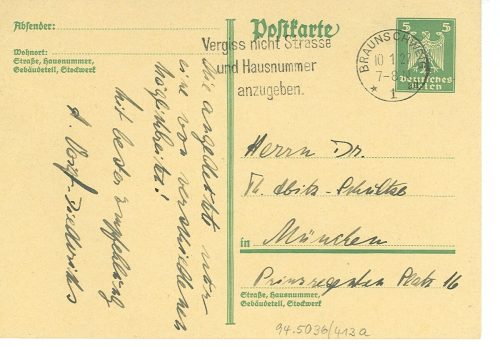 Absender:
Wohnort:
Straße, Hausnummer,
Gebäudeteil, Stockwerk
Wie angedeutet nur
eine von verschiedenen
Möglichkeiten!
Mit bester Empfehlung
A.
Postkarte
Vergiss nicht Strasse
und Hausnummer
anzugeben.
BRAUNSCHWEIG
10.1.2
7-8
* 1
5 5
Deutsches
Reich
Herrn Dr.
Th.
in München
Prinzregenten Platz 16
Straße, Hausnummer,
Gebäudeteil, Stockwerk
94.5036/413a